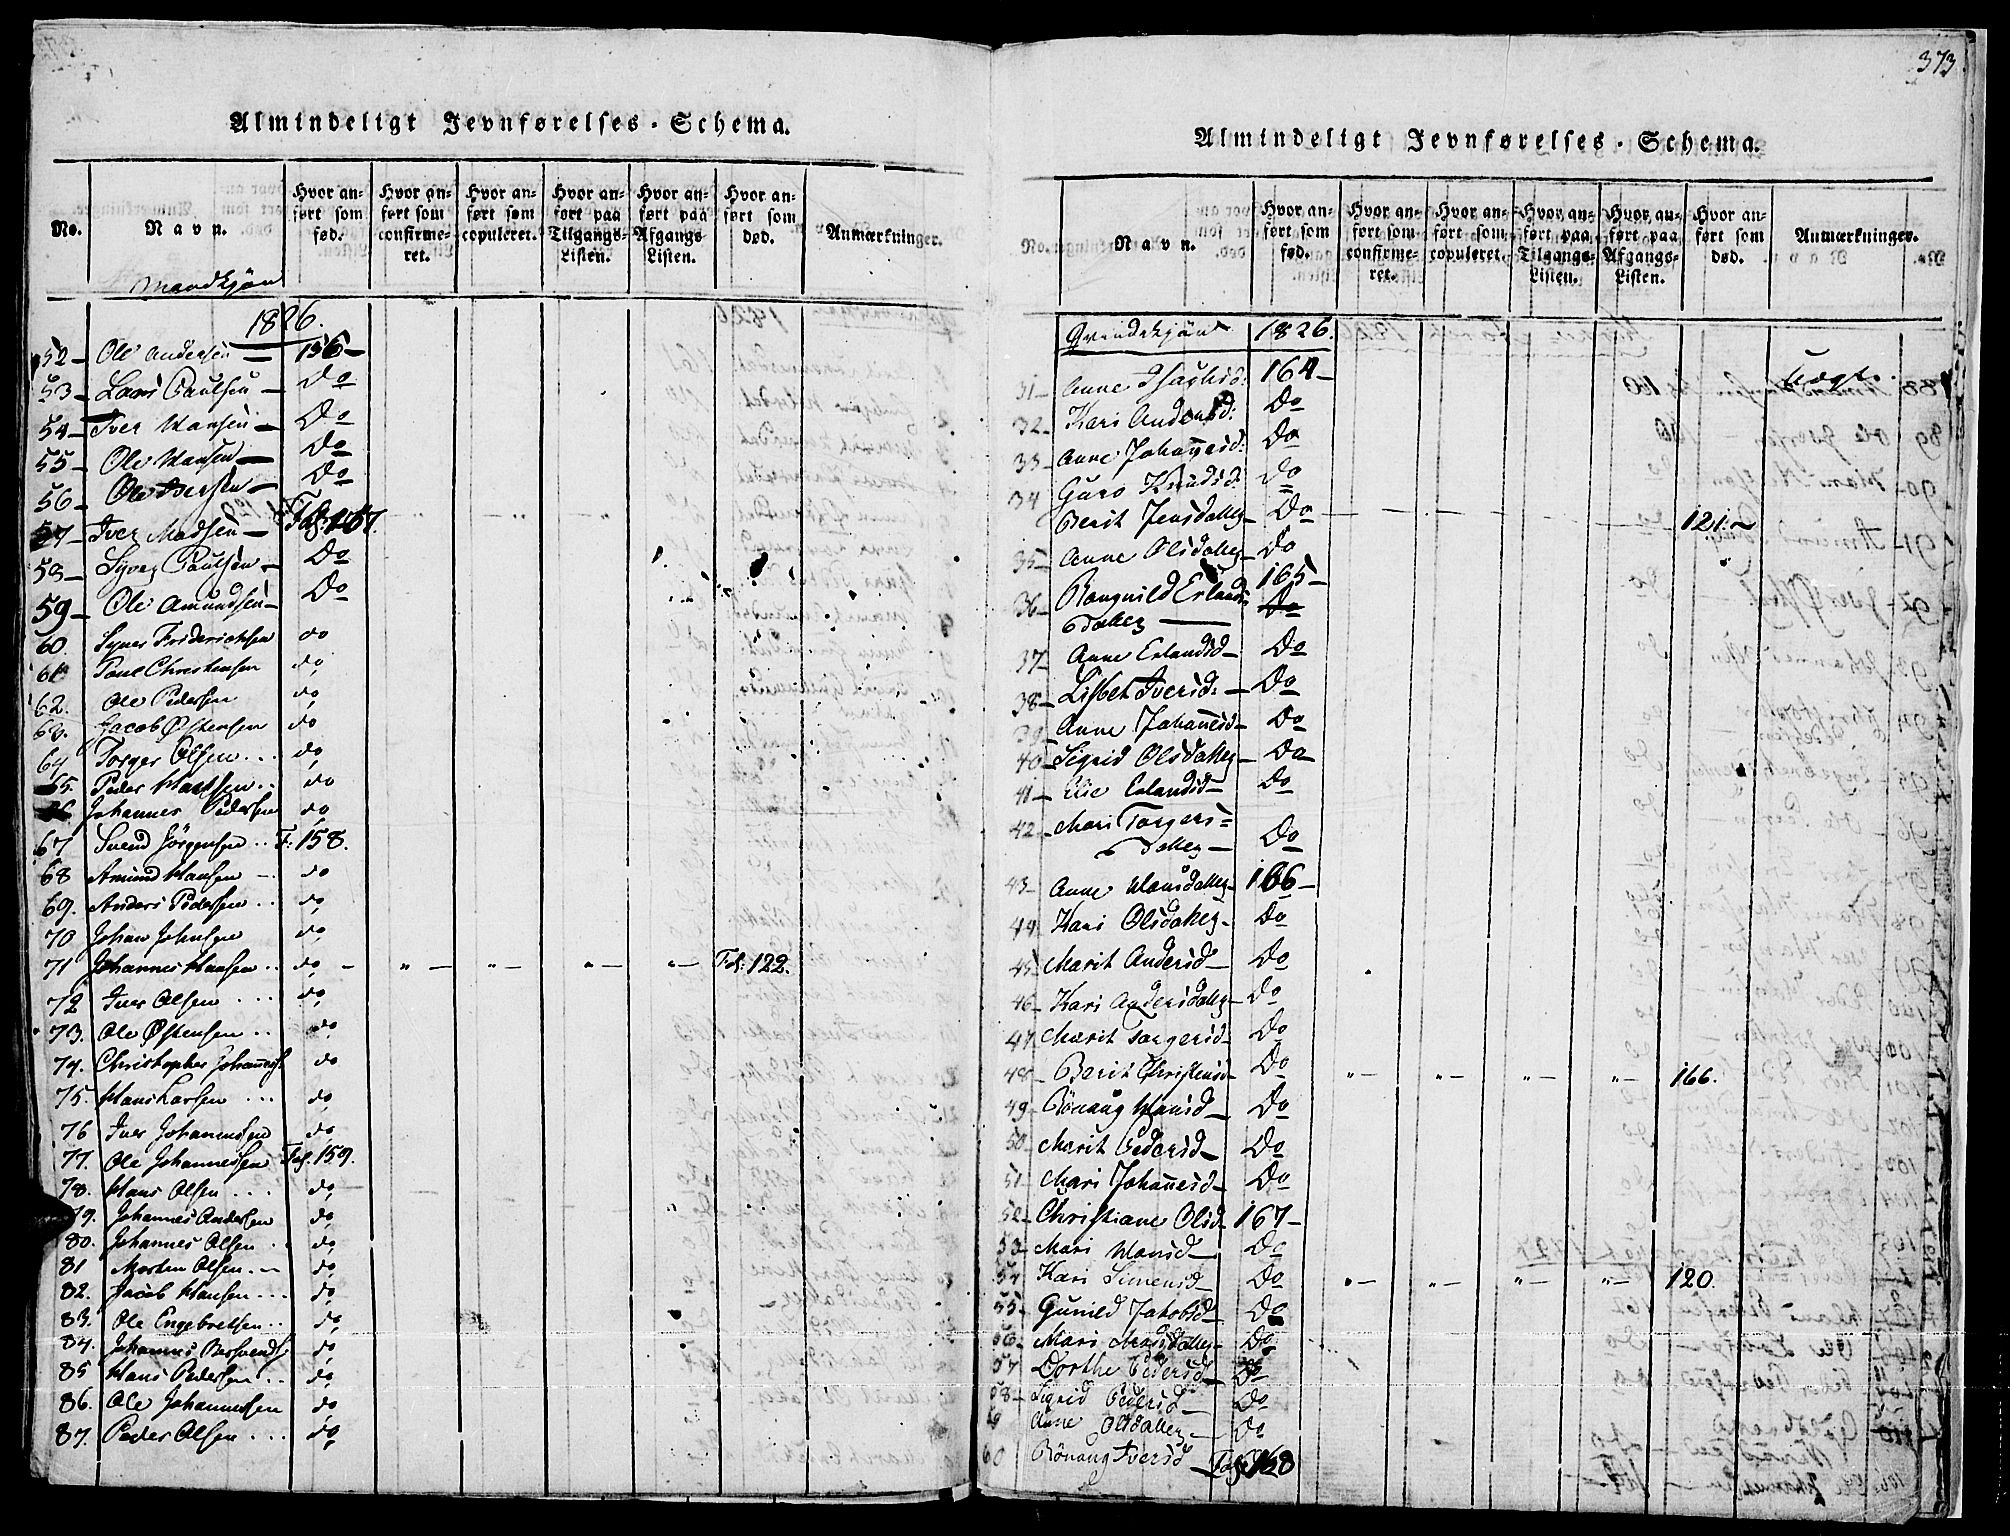 373
Almindeligt Jevnførelses-Schema.
No.
Navn.
Hvor anført som fød.
Hvor anført som confirmeret.
Hvor anført som copuleret.
Hvor anført paa Tilgangs-Listen.
Hvor anført paa Afgangs-Listen.
Hvor anført som død.
Anmærkninger.
Mandkjøn
1826.
52 Ole Andersen 156
53 Lars Paulsen Do
54 Iver Hansen Do
55 Ole Hansen Do
56 Ole Iversen Do
57 Iver Madsen Fol: 157.
58 Syver Paulsen Do
59 Ole Amundsen Do
60. Syver Friderichsen do
61 Paul Christensen do
62. Ole Pedersen do
63. Jacob Østensen do
64 Torger Olsen do
65. Peder Hansen do
66 Johannes Pedersen do
67 Svend Jörgensen F: 158.
68 Amund Hansen do
69. Anders Pedersen do
70 Johan Johnsen do
71 Johannes Hansen do " " " " Fol: 122.
72 Iver Olsen do
73. Ole Østensen do
74. Christopher Johannes: do
75. Hans Larsen do
76 Iver Johannessen do
77. Ole Johannessen Fol. 159.
78. Hans Olsen do
79. Johannes Andersen do
80. Johannes Olsen do
81 Morten Olsen do
82. Jacob Hansen do
83. Ole Engebretsen do
84. Johannes do
85 Hans Pedersen do
86. Ole Johannessen do
87. Peder Olsen do
Almindeligt Jevnførelses-Schema.
No.
Navn.
Hvor anført som fød.
Hvor anført som confirmeret.
Hvor anført som copuleret.
Hvor anført paa Tilgangs-Listen.
Hvor anført paa Afgangs-Listen.
Hvor anført som død.
Anmærkninger.
Qvindekjön 1826.
31 Anne 164
32 Kari Andersd: Do
33 Anne Johannesd: Do
34 Guro Knudsd: Do
Berit Jensdatter Do 121.
35 Anne Olsdatter Do
36 Rangnild Erlands 165
datter Do
37 Anne Erlandsd Do
38 Lisbet Iversd: Do
39 Anne Johannesd Do
40 Sigrid Olsdatter Do
41 Elie Erlandsd Do
42 Mari Torgers=
datter Do
43 Anne Hansdatter 166
44 Kari Olsdatter Do
45 Marit Andersd Do
46 Kari Andersdatter Do
47 Marit Torgersd Do
48 Berit Christensd Do " " " " 166.
49 Rönaug Hansd Do
50 Marit Pedersd Do
51 Mari Johannesd Do
52 Christiane Olsd 167
53 Mari Hansd Do
54 Kari Simensd Do " " " " 120.
55 Gunild Jakobsd Do
56 Mari Do
57 Dorthe Pedersd Do
58 Sigrid Pedersd Do
59 Anne Olsdatter Do
60 Rönaug Iversd Fol: 168